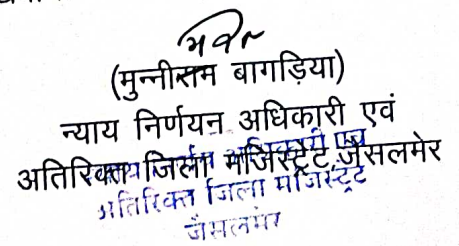 (मुन्नीराम बागड़िया)
न्याय निर्णयन अधिकारी एवं
अतिरिक्त जिला मजिस्ट्रेट, जैसलमेर
न्याय निर्णयन अधिकारी एवं
अतिरिक्त जिला मजिस्ट्रेट
जैसलमेर